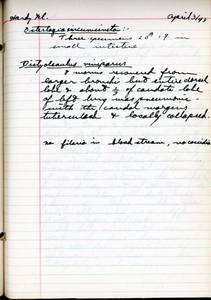 April 3/47
Ostertagia circumcincta:-
Three specimens 2♂ 1♀ in
small intestine
Dictyocaulus viviparus
worms recovered from
larger bronchi but entire dorsal
lobe & about ½ of caudate lobe
of left lung was pneumonic
with the caudal margins
tubercular & locally collapsed.
no filaria in blood stream, no coccidia